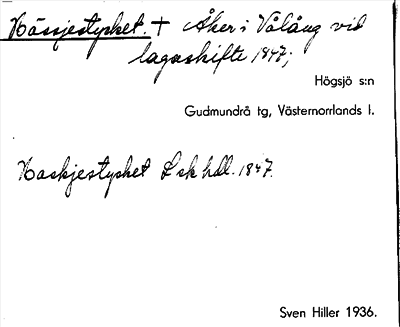 Hässjestycket. † Åker i Vålång vid
lagaskifte 1847;
Högsjö s:n
Gudmundrå tg, Västernorrlands l.
Haskjestycket L sk hdl. 1847.
Sven Hiller 1936.